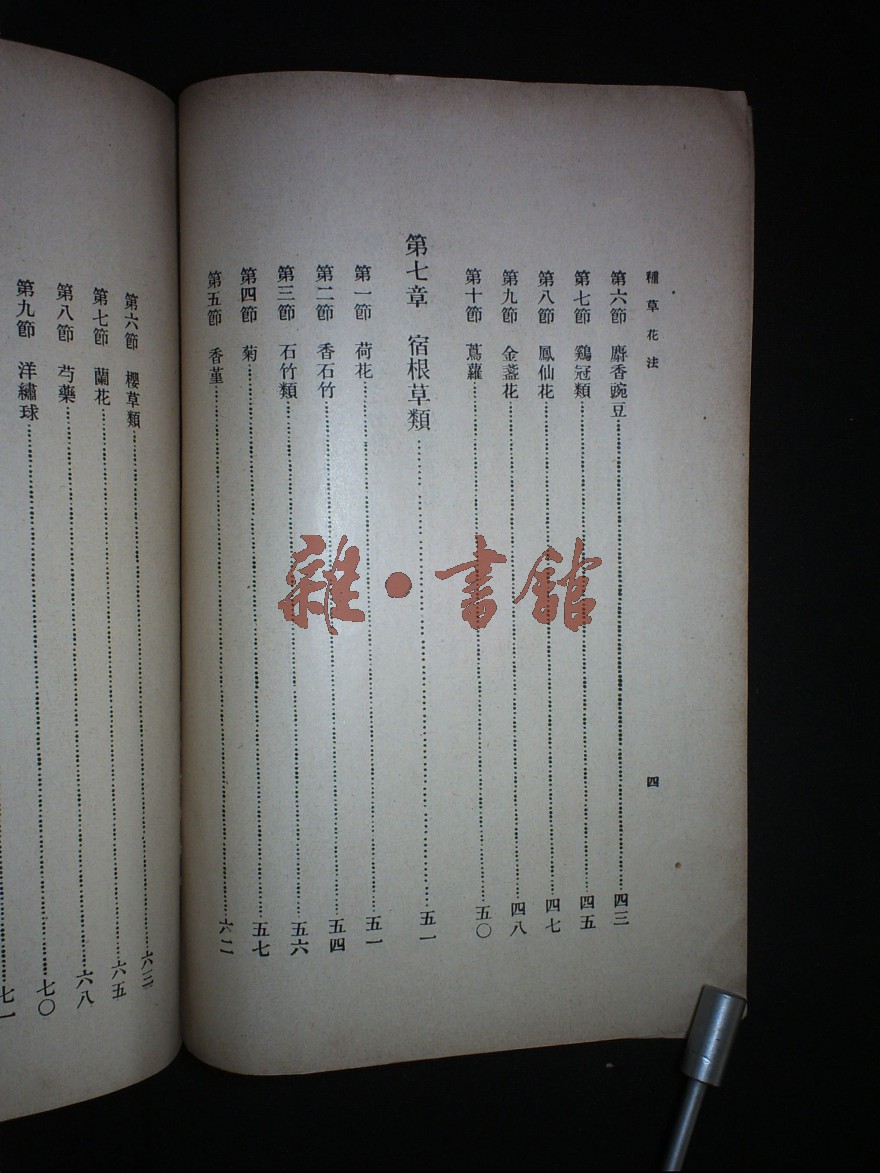 種草花法
四
第六節 麝香豌豆……四三
第七節 鷄冠類……四五
第八節 鳳仙花……四七
第九節 金盞花……四八
第十節 蔦蘿……五〇
第七章 宿根草類……五一
第一節 荷花……五一
第二節 香石竹……五四
第三節 石竹類……五六
第四節 菊……五七
第五節 香堇……六二
第六節 櫻草類……六三
第七節 蘭花……六五
第八節 芍藥……六八
第九節 洋繡球……七〇
七一
雜·書館